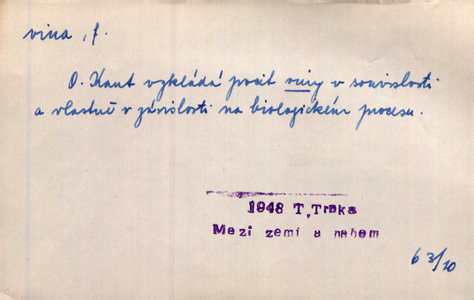 vina, f.
O. Kant vykládá pocit viny v souvislosti
a vlastně v závislosti na biologickém procesu.
1948 T. Trnka
Mezi zemí a nebem
63/10